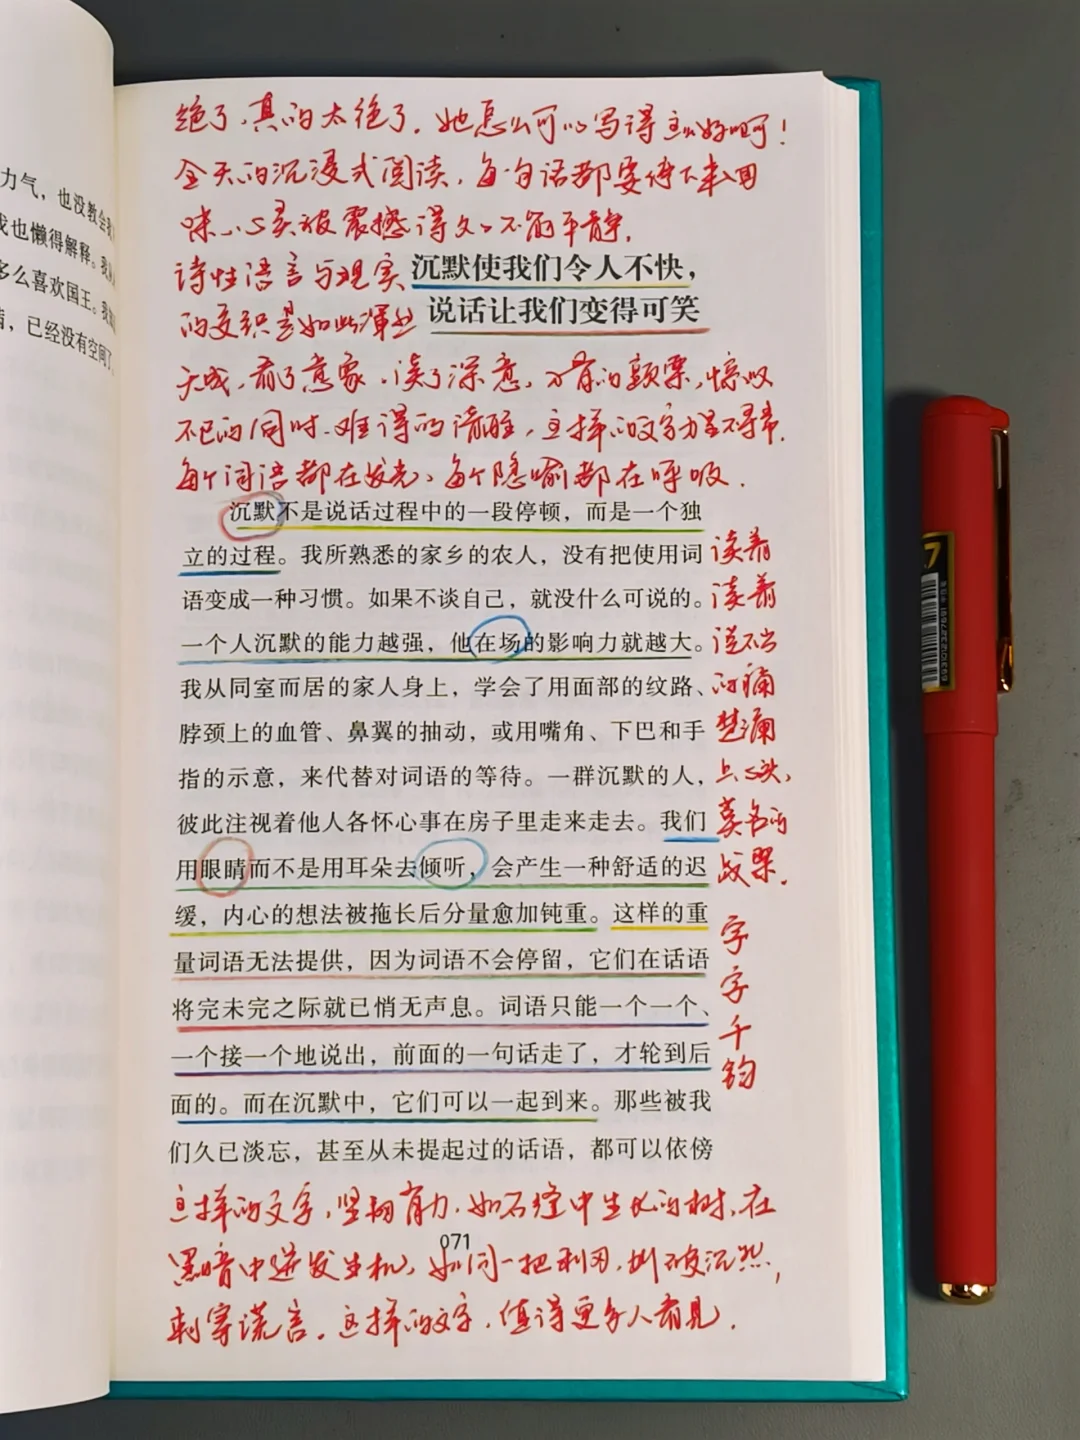 力气，也没教会我
我也懒得解释。我
多么喜欢国王。我
，已经没有空间了
绝了，真的太绝了，她怎么可以写得这么好啊！
全天的沉浸式阅读，每句话都要停下来回
味，心灵被震撼得久久不能平静。
诗性语言与现实
沉默使我们令人不快，
的交织是如此浑然
说话让我们变得可笑
天成，有了意象，读了深意，有的颤栗，惊叹
不已的同时，难得的清醒，这样的文字力量不得了，
每个词语都在发光，每个隐喻都在呼吸。
沉默不是说话过程中的一段停顿，而是一个独
立的过程。我所熟悉的家乡的农人，没有把使用词
语变成一种习惯。如果不谈自己，就没什么可说的。
一个人沉默的能力越强，他在场的影响力就越大。
我从同室而居的家人身上，学会了用面部的纹路、
脖颈上的血管、鼻翼的抽动，或用嘴角、下巴和手
指的示意，来代替对词语的等待。一群沉默的人，
彼此注视着他人各怀心事在房子里走来走去。我们
用眼睛而不是用耳朵去倾听，会产生一种舒适的迟
缓，内心的想法被拖长后分量愈加钝重。这样的重
量词语无法提供，因为词语不会停留，它们在话语
将完未完之际就已悄无声息。词语只能一个一个、
一个接一个地说出，前面的一句话走了，才轮到后
面的。而在沉默中，它们可以一起到来。那些被我
们久已淡忘，甚至从未提起过的话语，都可以依傍
读着
读着
说不出
的痛
楚涌
上心头，
莫名的
战栗。
字
字
千
钧
这样的文字，坚韧有力，如石缝中生长的树，在
071
黑暗中迸发生机，如同一把利刃，划破沉默，
刺穿谎言。这样的文字，值得更多人看见。
.7